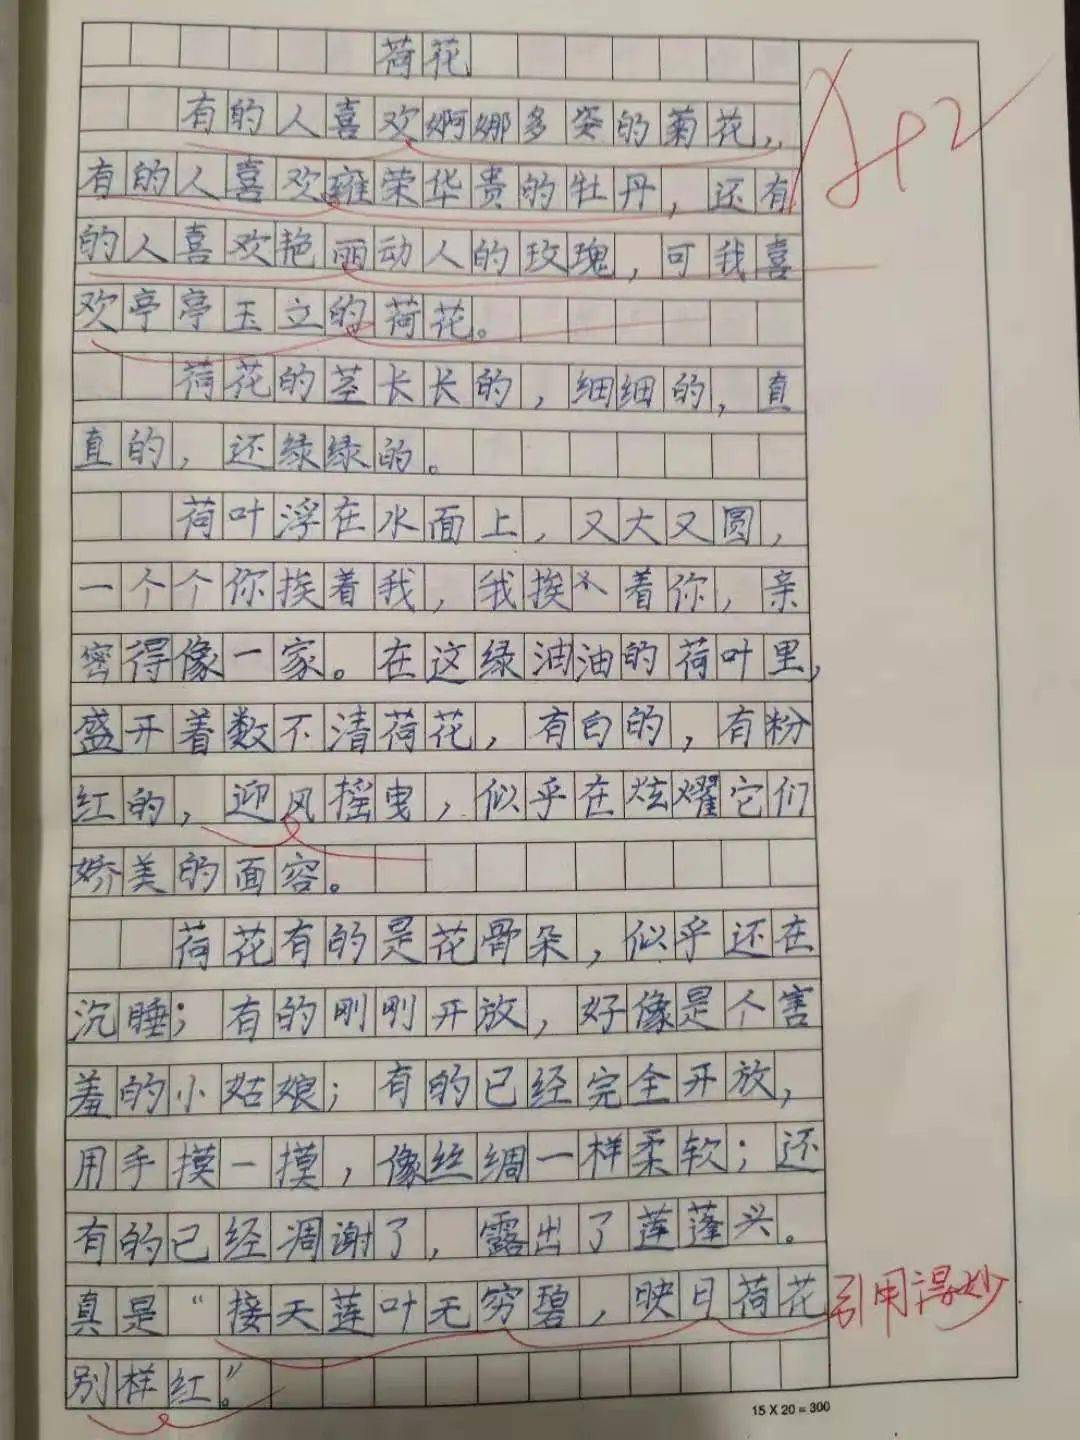 荷花
有的人喜欢婀娜多姿的菊花，
有的人喜欢雍荣华贵的牡丹，还有
的人喜欢艳丽动人的玫瑰，可我喜
欢亭亭玉立的荷花。
荷花的茎长长的，细细的，直
直的，还绿绿的。
荷叶浮在水面上，又大又圆，
一个个你挨着我，我挨着你，亲
密得像一家。在这绿油油的荷叶里，
盛开着数不清荷花，有白的，有粉
红的，迎风摇曳，似乎在炫耀它们
娇美的面容。
荷花有的是花骨朵，似乎还在
沉睡；有的刚刚开放，好像是个害
羞的小姑娘；有的已经完全开放，
用手摸一摸，像丝绸一样柔软；还
有的已经凋谢了，露出了莲蓬头。
真是“接天莲叶无穷碧，映日荷花
引用得妙
别样红。”
15 X 20 = 300